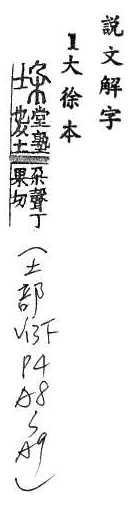 說文解字
1大徐本
垛堂塾也从土朵聲丁果切
(土部 V13F P4 A8~A9)